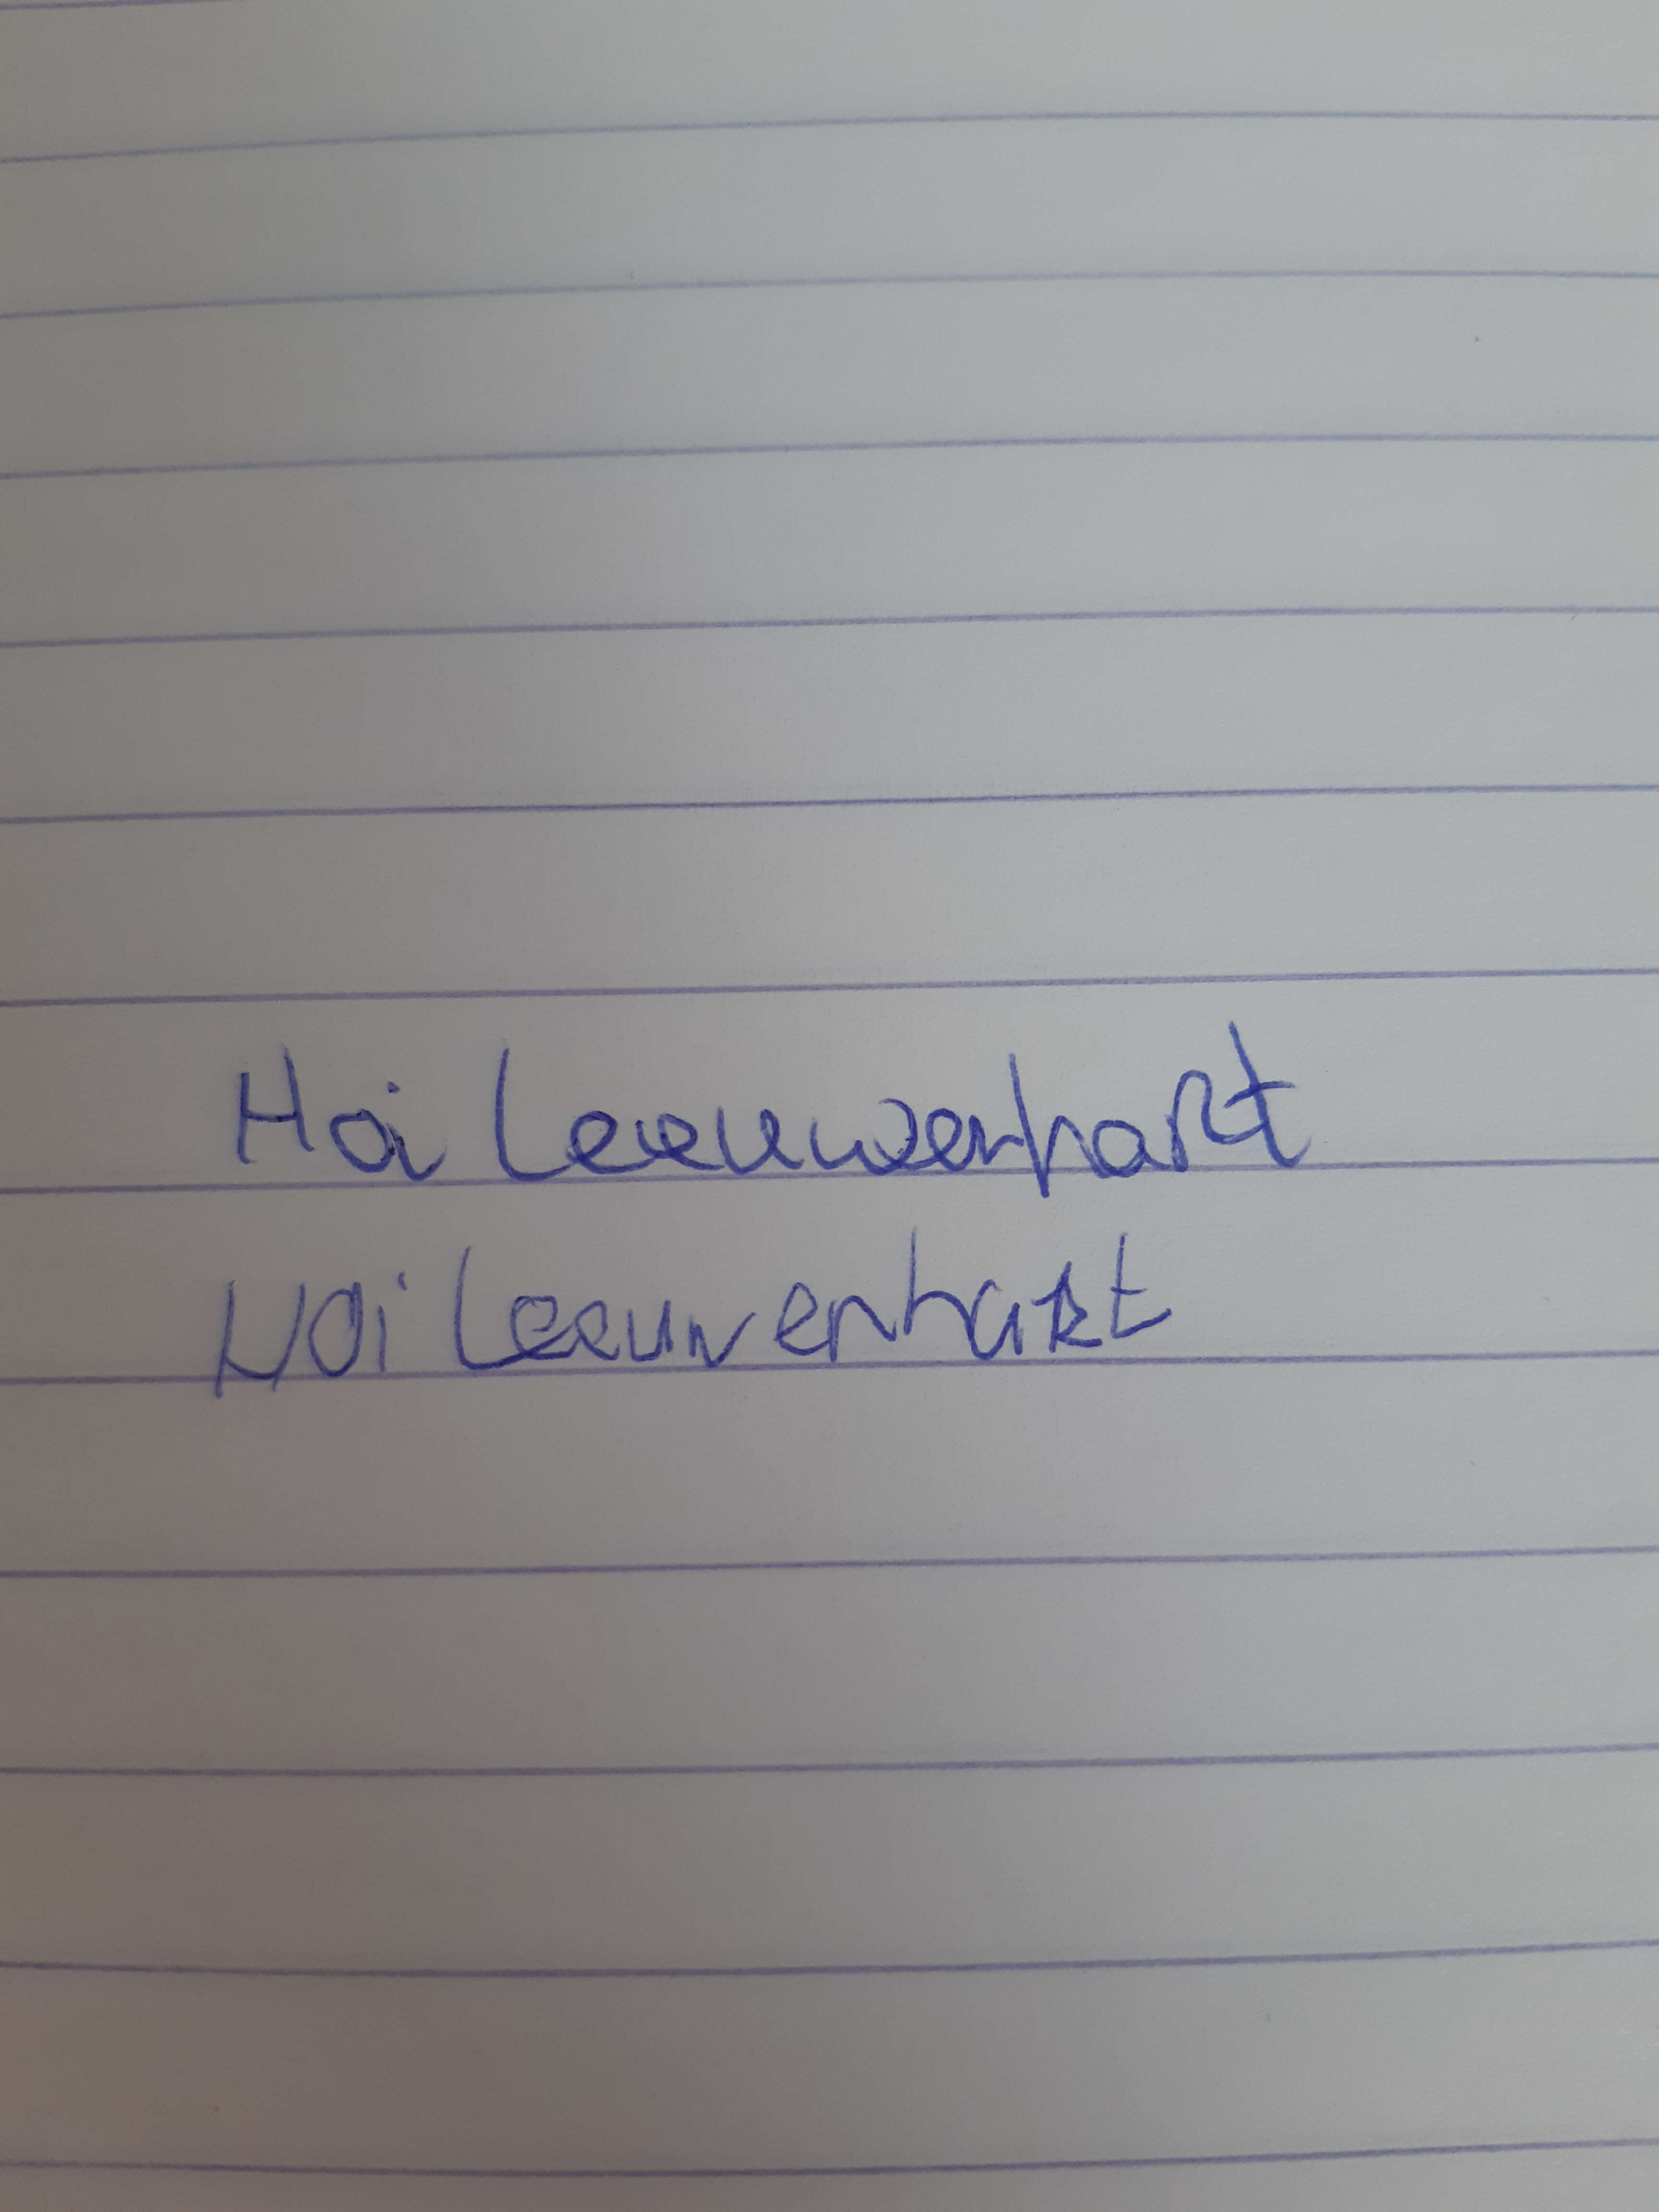 Hoi Leeuwenhart
Hoi Leeuwenhart